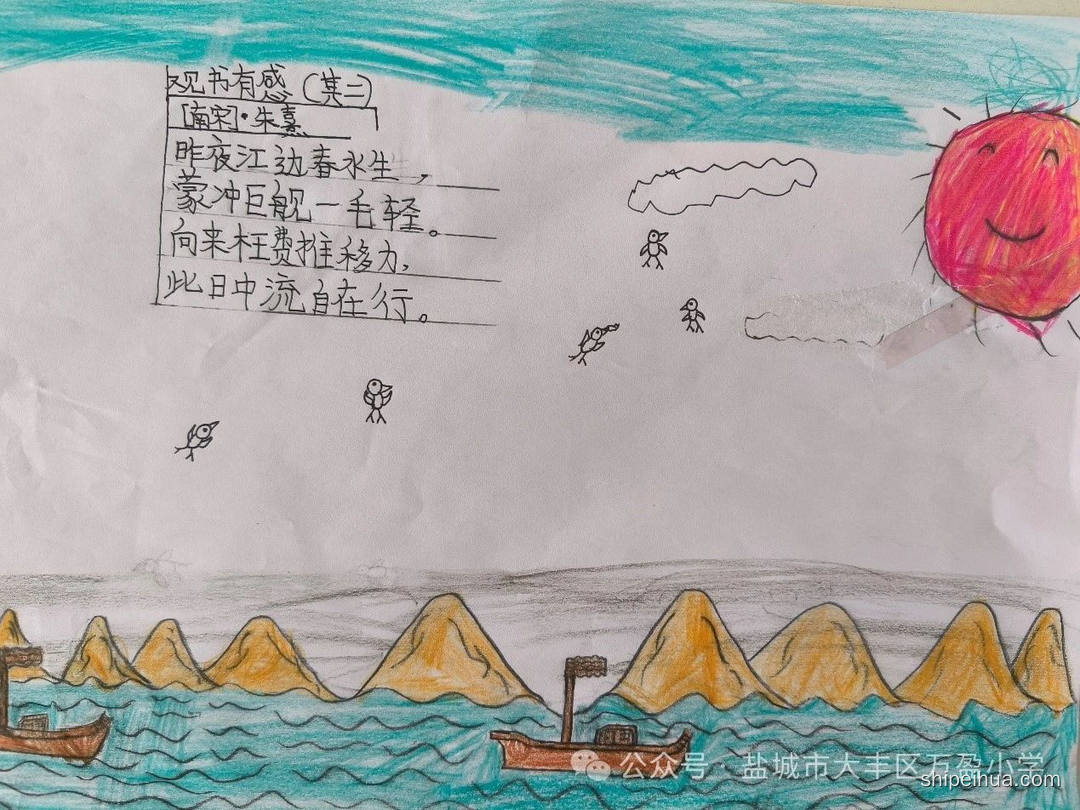 观书有感(其二)
[南宋]·朱熹
昨夜江边春水生，
蒙冲巨舰一毛轻。
向来枉费推移力，
此日中流自在行。
公众号·盐城市大丰区万盈小学
shipeihua.com